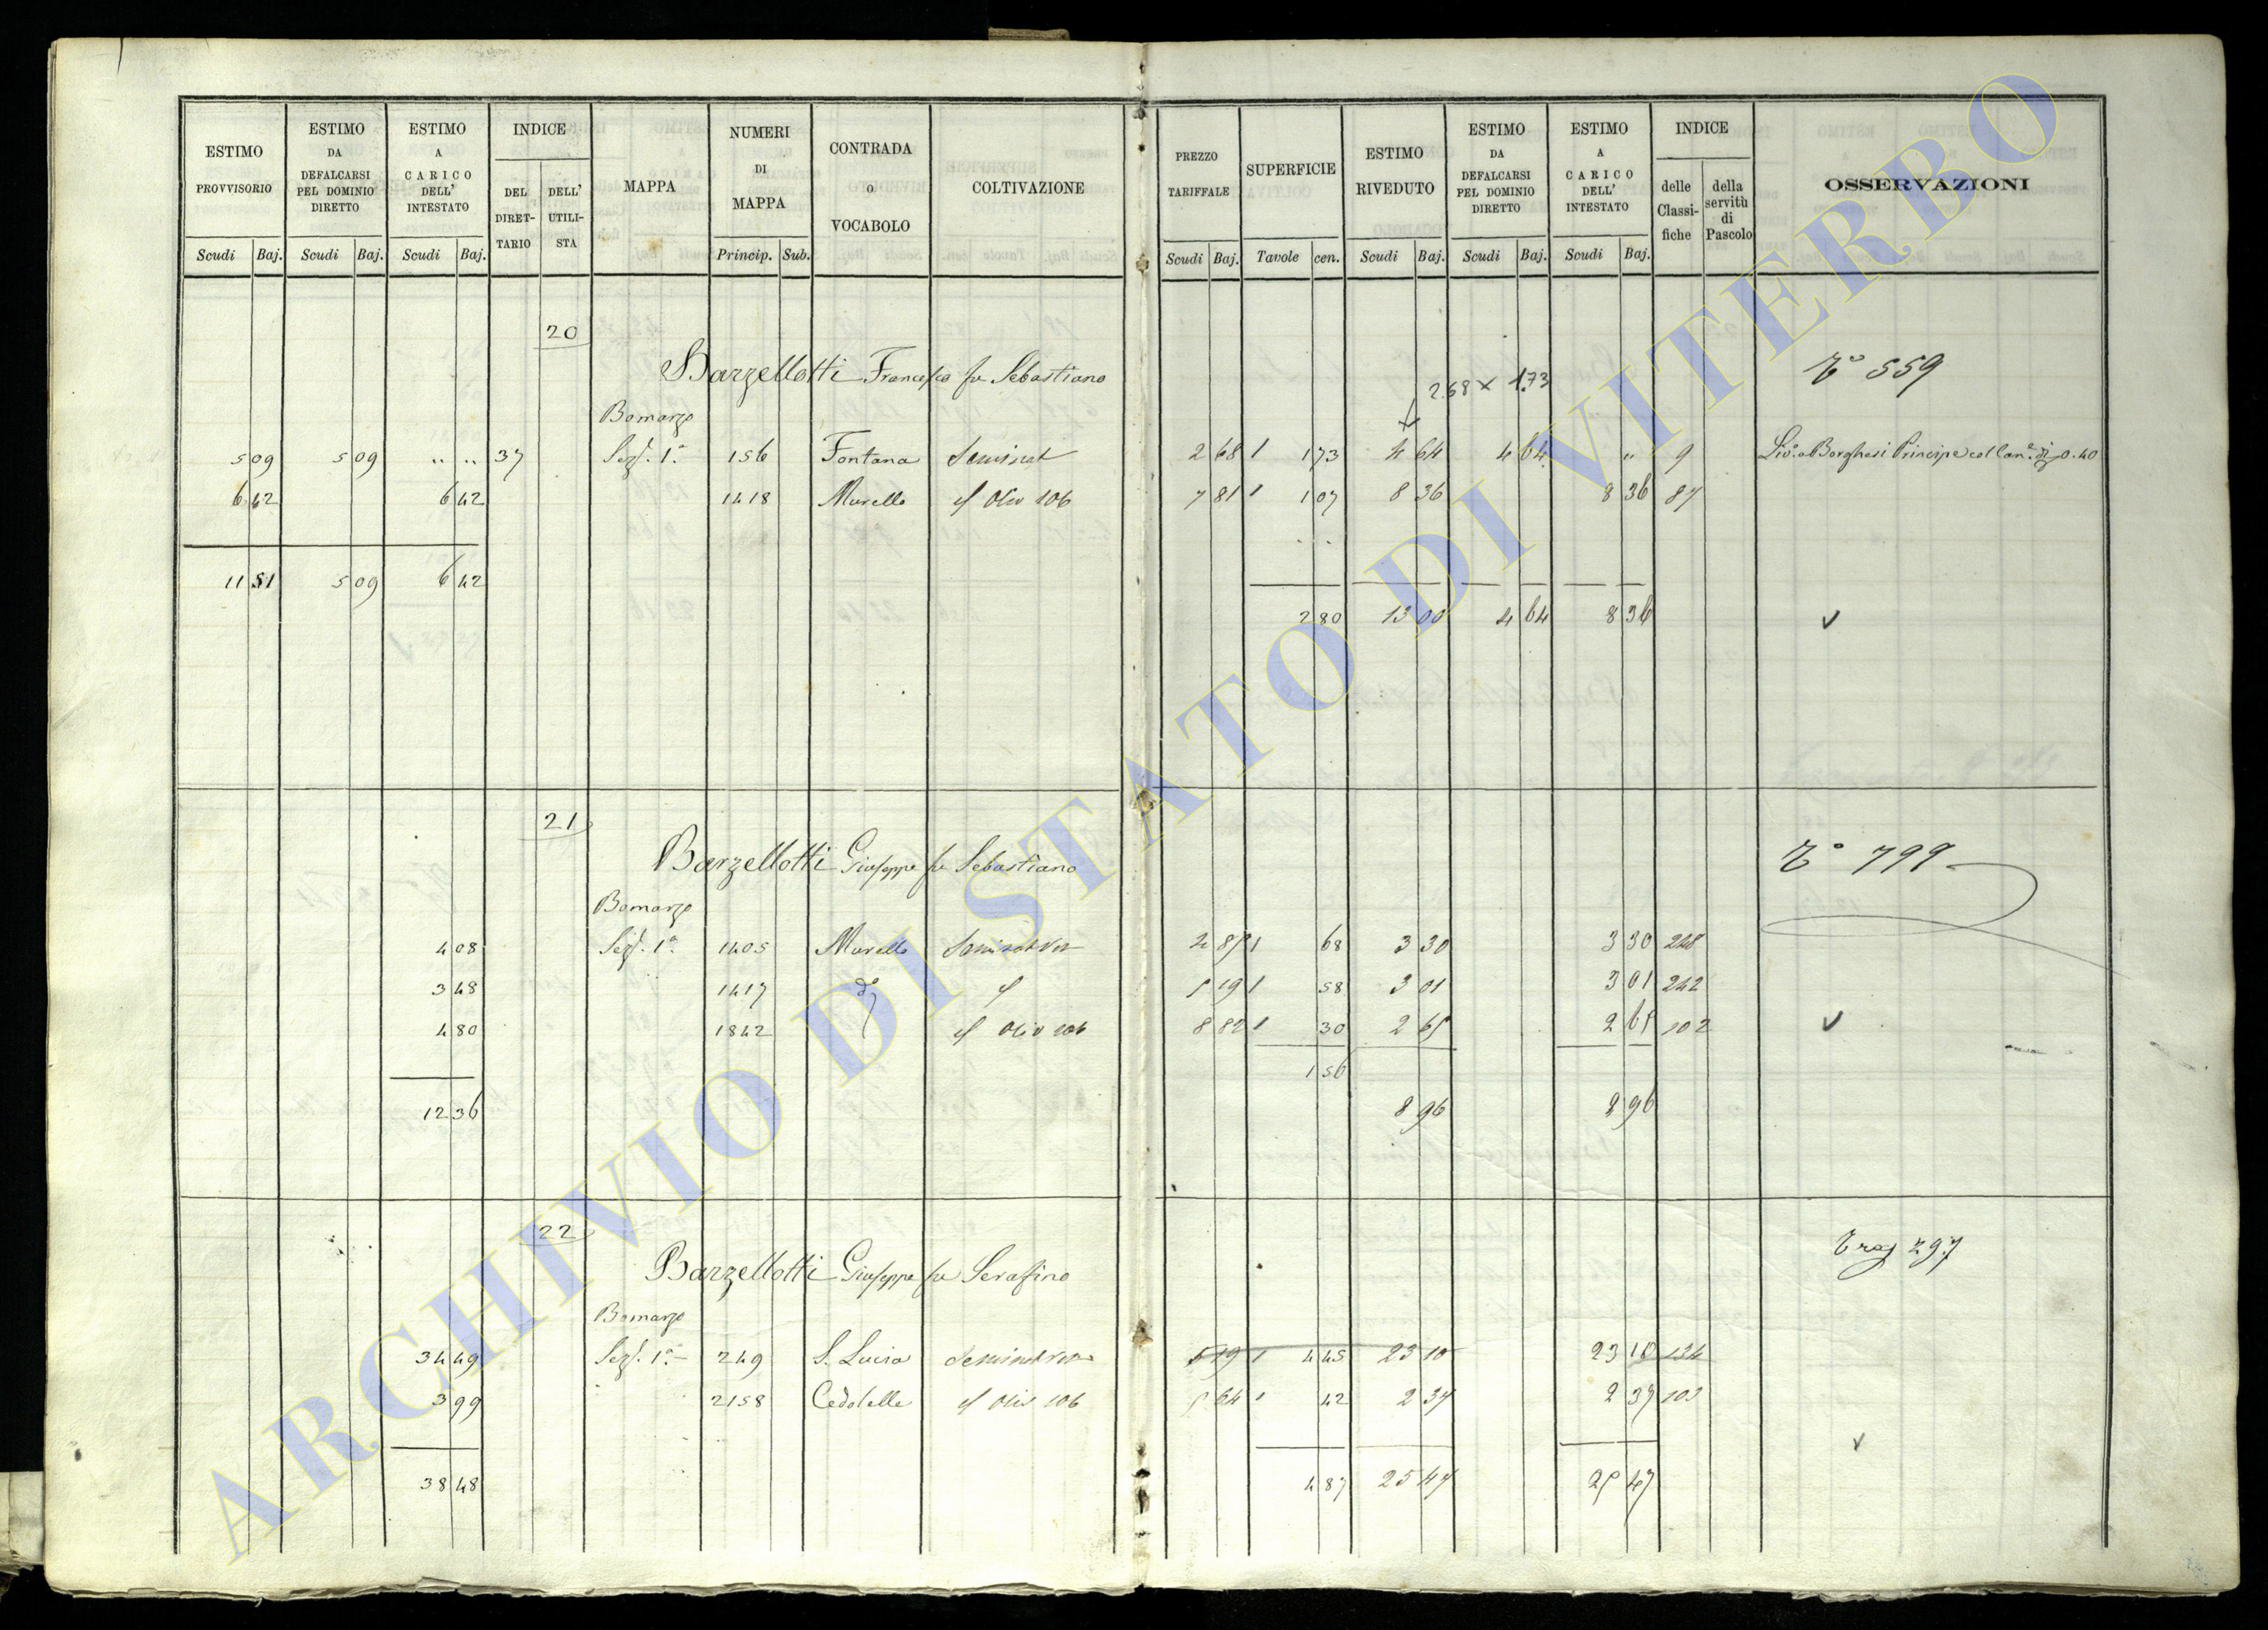 ESTIMO PROVVISORIO
ESTIMO DA DEFALCARSI PEL DOMINIO DIRETTO
ESTIMO A CARICO DELL' INTESTATO
INDICE
DEL DIRET-TARIO
DELL' UTILI-STA
MAPPA
NUMERI DI MAPPA
CONTRADA O VOCABOLO
COLTIVAZIONE
PREZZO TARIFFALE
SUPERFICIE
ESTIMO RIVEDUTO
ESTIMO DA DEFALCARSI PEL DOMINIO DIRETTO
ESTIMO A CARICO DELL' INTESTATO
INDICE
delle Classi-fiche
della servitù di Pascolo
OSSERVAZIONI
Scudi Baj. Scudi Baj. Scudi Baj. Princip. Sub. Scudi Baj. Tavole cen. Scudi Baj. Scudi Baj. Scudi Baj.
20
Barzellotti Francesco fu Sebastiano
559
2.68 x 1.73
Bomarzo
5 09 5 09 " " 37 Sez. 1a 156 Fontana Seminat 2 68 1 1 73 4 64 4 64 " 9 Livo a Borghesi Principe col Cane di 0.40
6 42 6 42 1418 Murello Oliv 106 7 81 1 1 07 8 36 8 36 87
11 51 5 09 6 42
2 80 13 00 4 64 8 36
21
Barzellotti Giuseppe fu Sebastiano
799
Bomarzo
4 08 Sez. 1a 1405 Murello 4 85 1 68 3 30 3 30 248
3 48 1417 do 5 19 1 58 3 01 3 01 242
4 80 1842 Oliv 106 8 82 1 30 2 65 2 65 102
1 56
12 36 8 96 8 96
22
Barzellotti Giuseppe fu Serafino
297
Bomarzo
34 49 Sez. 1a 249 S. Lucia 5 19 1 4 45 23 10 23 10 134
3 99 2158 Cedolelle Oliv 106 5 64 1 42 2 37 2 37 103
38 48 4 87 25 47 25 47
ARCHIVIO DI STATO DI VITERBO